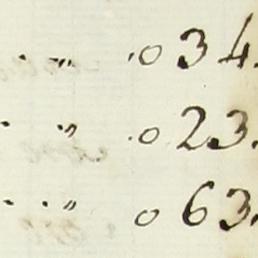 . „ . 0 34.
. „ . 0 23.
. . „ 0 63.